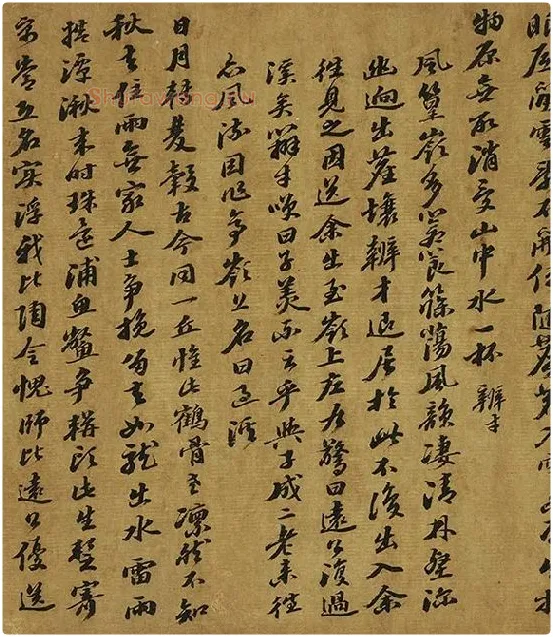 物原無取消受山中水一杯 辯才
風篁嶺多蒼筤篠蕩風韻凄清林壑深
幽迥出塵壤辯才退居於此不復出入余
往見之因送余出至嶺上左右驚曰遠公復過
溪矣辯才笑曰子美不云乎與子成二老來往
亦風流因作亭嶺上名曰過溪
日月轉雙轂古今同一丘惟此鶴骨老凛然不知
秋去住兩無礙人士爭挽留去如龍出水雷雨
捲潭湫來時珠還浦魚鱉爭駢頭此生暫寄
寓常恐名實浮我比陶令愧師比遠公優送